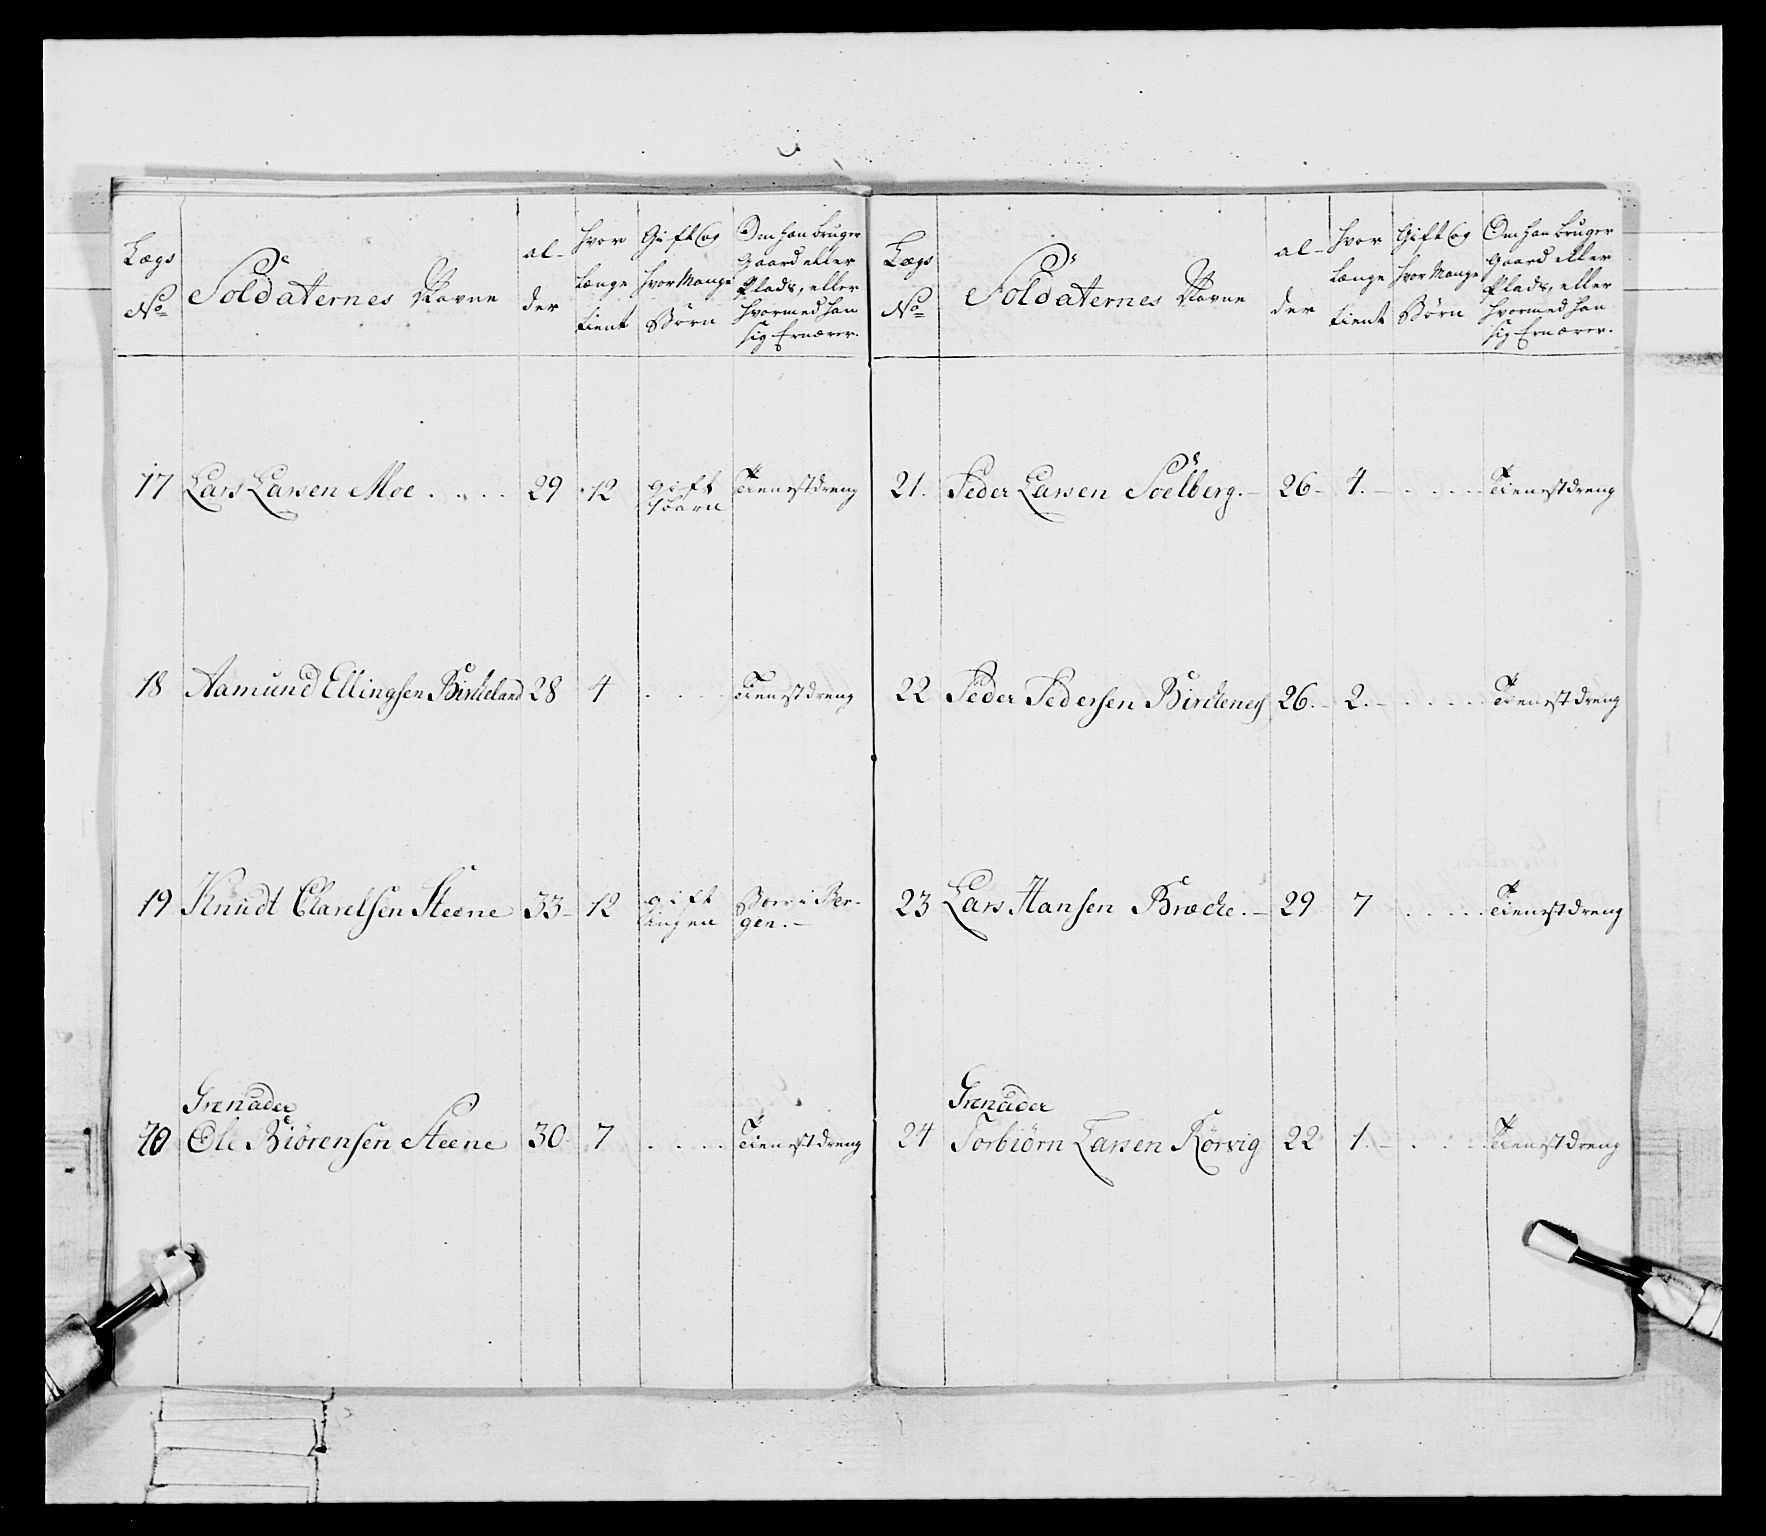 Lægs No
Soldaternes Navne
al-der
hvor længe tient
Gift og hvor Mange Börn
Om han bruger Gaard eller Plads, eller hvormed han sig Ernærer.
17 Lars Larsen Moe . . . . 29 12 gift Tienestdreng
18 Aamund Ellingsen Birckeland 28 4 . . . . Tienestdreng
19 Knudt Claretsen Steene 33 12 gift ingen Boer i Bergen.
Grenader
20 Ole Biörensen Steene 30 7 . . . . Tienestdreng
Lægs No
Soldaternes Navne
al-der
hvor længe tient
Gift og hvor Mange Börn
Om han bruger Gaard eller Plads, eller hvormed han sig Ernærer.
21. Peder Larsen Soelberg. 26 4. . . . . Tienestdreng
22 Peder Pedersen Birckenes 26. 2. . . . . Tienestdreng
23 Lars Hansen Bræcke. 29 7 . . . . Tienestdreng
Grenader
24 Torbiörn Larsen Körvig 22 1. . . . . Tienestdreng